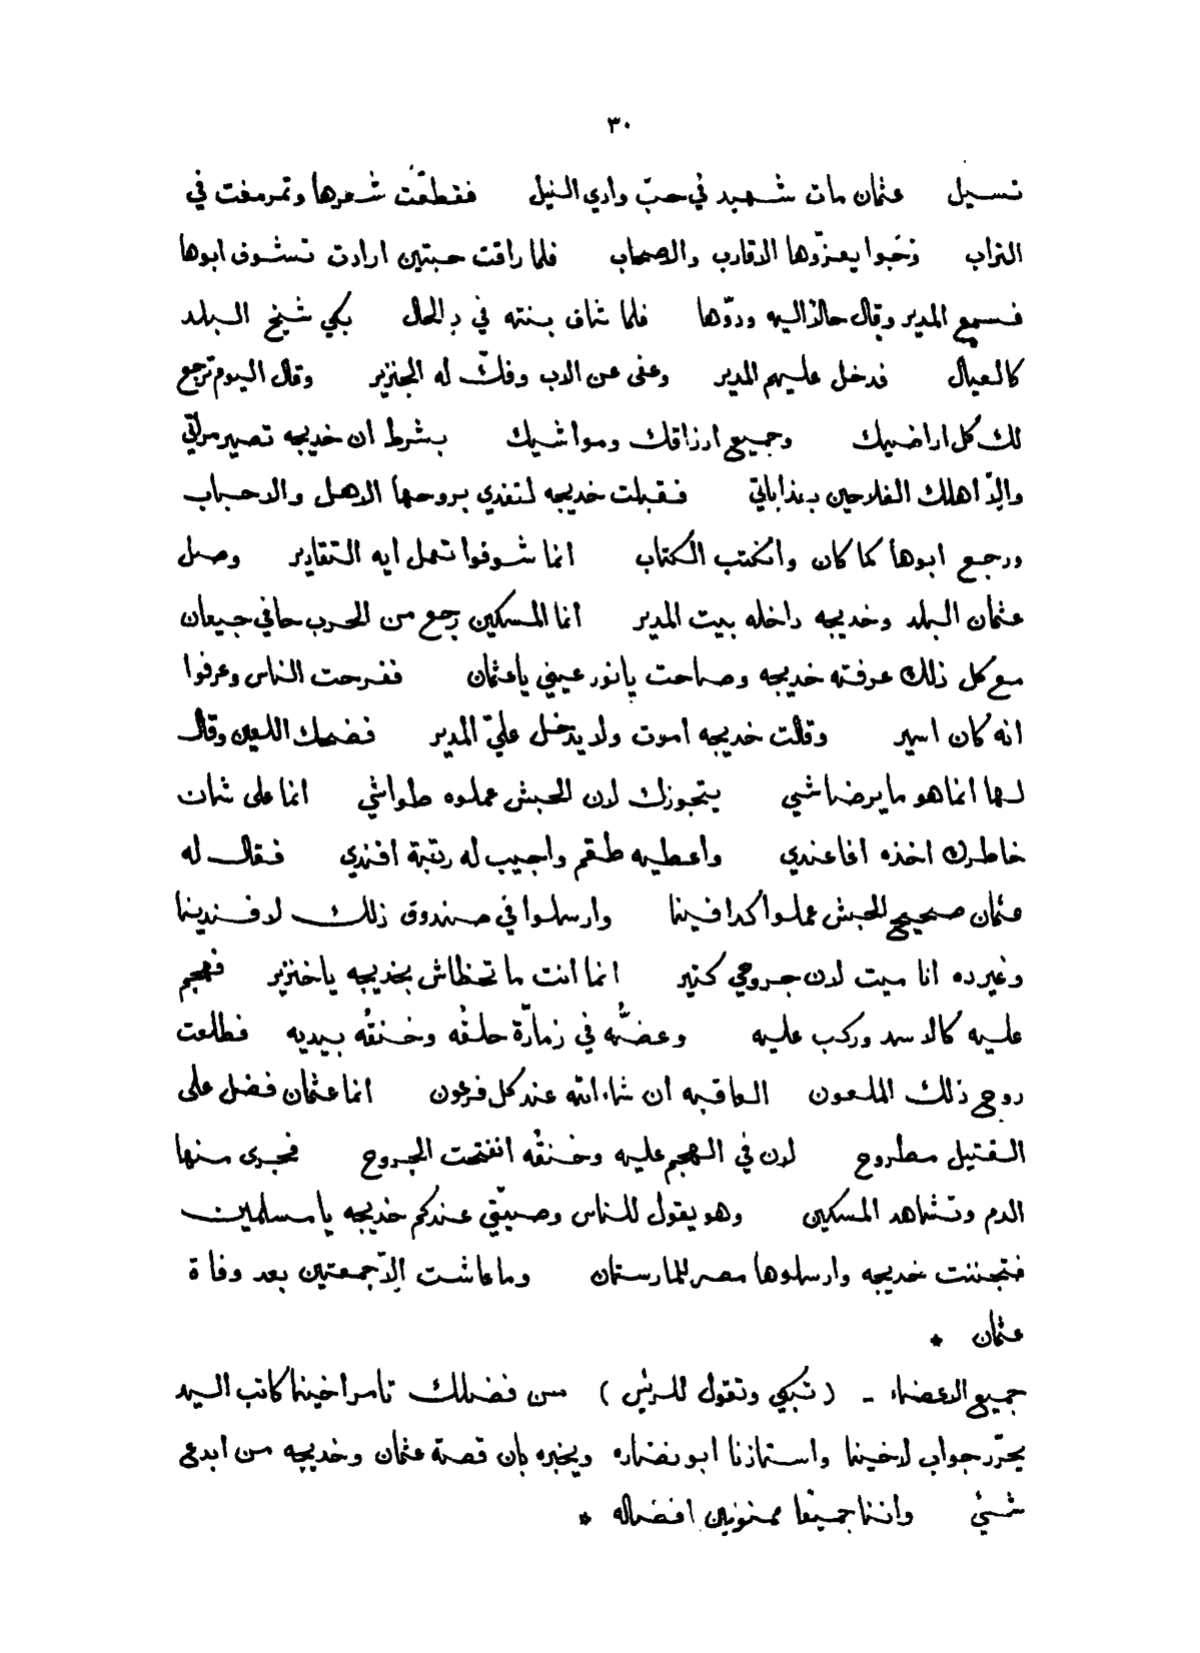 ٣٠
تسيل عثمان مات شهيد في حبّ وادي النيل فقطعّت شعرها وتمرمغت في
التراب وتحَبوا يعزّوها الاقارب والاصحاب فلما راقت حبتين ارادت تشوف ابوها
فسمع المدير وقال حالاً اليه ودّوها فلما شاف بنته في دِالحال بكي شيخ البلد
كالعيال فدخل عليهم المدير وعفى عن الاب وفكّ له الجنزير وقال اليوم ترجع
لك كل اراضيك وجميع ارزاقك ومواشيك بشرط ان خديجه تصير مرأتي
والاّ اهلك الفلاحين بعذاباتي فقبلت خديجه لتفدي بروحها الاهل والاحباب
ورجع ابوها كما كان وانكتب الكتاب انما شوفوا تعمل ايه التقادير وصل
عثمان البلد وخديجه داخله بيت المدير انما المسكين رجع من الحرب حافي جيعان
مع كل ذلك عرفته خديجه وصاحت يا نور عيني يا عثمان ففرحت الناس وعرفوا
انه كان اسير وقالت خديجه اموت ولا يدخل عليّ المدير فضحك اللعين وقال
لها انما هو ما يرضاشي يتجوزك لان الحبش عملوه طواشي انما على شان
خاطرك اخذه اغا عندي واعطيه طقم واجيب له رتبة افندي فقال له
عثمان صحيح الحبش عملوا كدا فينا وارسلوا في صندوق ذلك لافندينا
وغير ده انا ميت لان جروحي كتير انما انت ما تحظاش بخديجه يا خنزير فهجم
عليه كالاسد وركب عليه وعضُّه في زمارّة حلقُه وخنقُه بيديه فطلعت
روح ذلك الملعون العاقبه ان شاء الله عند كل فرعون انما عثمان فضل على
القتيل مطروح لان في الهجم عليه وخنقُه انفتحت الجروح فجرى منها
الدم وتشاهد المسكين وهو يقول للناس وصيّتي عندكم خديجه يا مسلمين
فتجننت خديجه وارسلوها مصر للمارستان وما عاشت الاّ جمعتين بعد وفاة
عثمان *
جميع الاعضاء ـ (تبكي وتقول للرئيس) من فضلك تامر اخينا كاتب السيد
يحرّر جواب لاخينا واستاذنا ابو نضاره ويخبره بان قصة عثمان وخديجه من ابدع
شئ واننا جميعًا ممنونين افضاله *